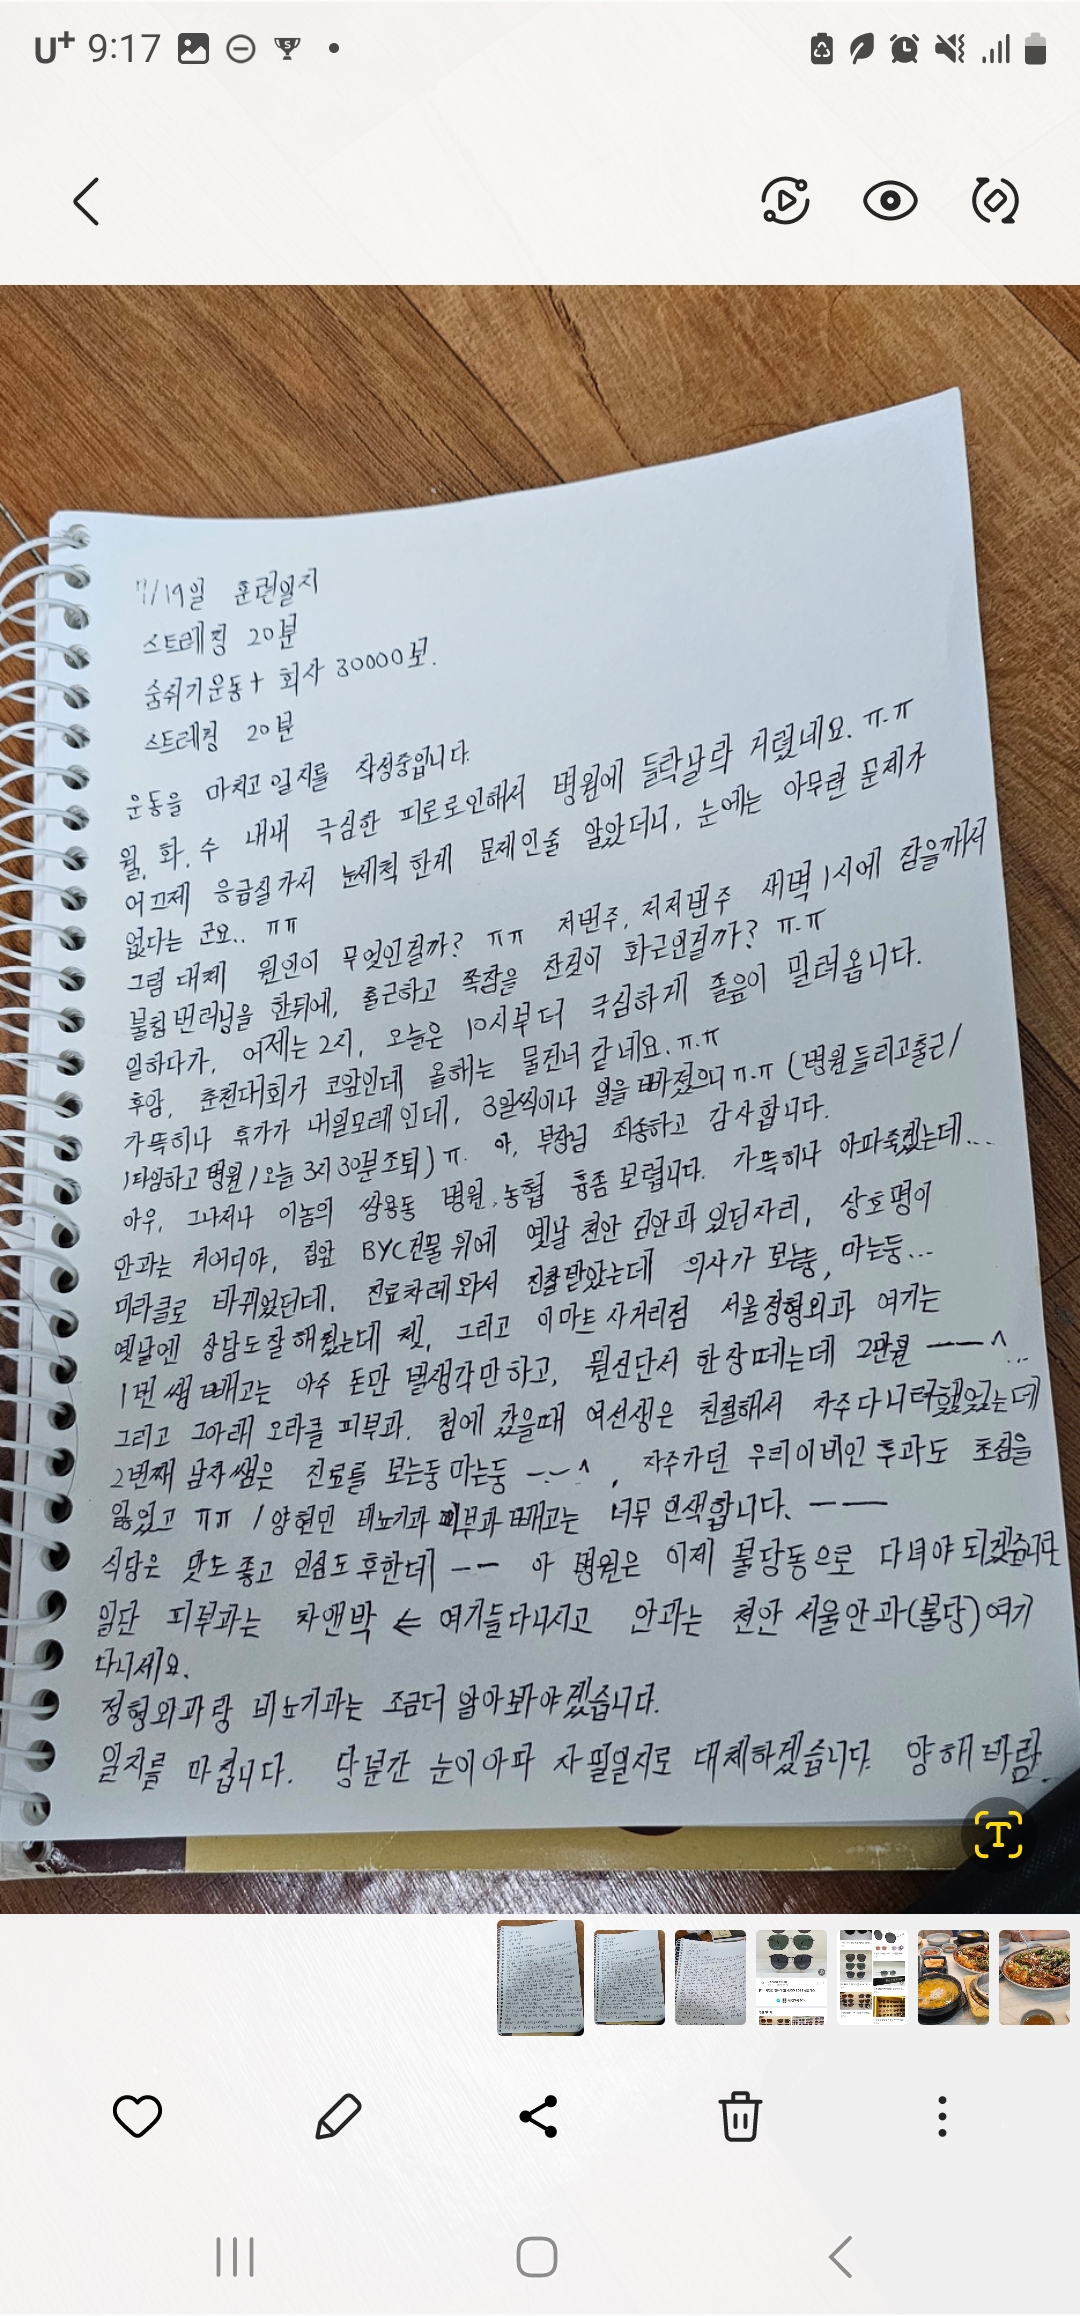 U+ 9:17
7/19일 훈련일지
스트레칭 20분
숨쉬기운동+ 회사 30000보.
스트레칭 20분
운동을 마치고 일지를 작성중입니다.
월, 화, 수 내내 극심한 피로로인해서 병원에 들락날락 거렸네요. ㅠ.ㅠ
어끄제 응급실가서 눈세척 한게 문제인줄 알았더니, 눈에는 아무런 문제가
없다는 군요.. ㅠㅠ
그럼 대체 원인이 무엇인걸까? ㅠㅠ 저번주, 저저번주 새벽 1시에 잠을깨서
불침번러닝을 한뒤에, 출근하고 쪽잠을 잔것이 화근인걸까? ㅠ.ㅠ
일하다가, 어제는 2시, 오늘은 10시부터 극심하게 졸음이 밀려옵니다.
후암, 춘천대회가 코앞인데 올해는 물건너 갔네요.ㅠ.ㅠ
가뜩히나 휴가가 내일모레인데, 3일씩이나 일을 빠졌으니 ㅠ.ㅠ (병원들리고출근/
1타임하고 병원/오늘 3시 30분조퇴) ㅠ. 아, 부장님 죄송하고 감사합니다.
아우, 그나저나 이놈의 쌍용동 병원, 농협 흉좀 보렵니다. 가뜩히나 아파죽겠는데...
안과는 케어디야, 집앞 BYC건물 위에 옛날 천안 김안과 있던자리, 상호명이
미라클로 바뀌었던데, 진료차례와서 진찰받았는데 의사가 보는둥, 마는둥...
옛날엔 상담도잘해줬는데 쳇, 그리고 이마트 사거리점 서울정형외과 여기는
1번 쌤 빼고는 아주 돈만 벌생각만하고, 뭔선단서 한장떼는데 2만원 ㅡㅡ^...
그리고 그아래 오라클 피부과, 첨에 갔을때 여선생은 친절해서 자주다니려했었는데
2번째 남자쌤은 진료를 보는둥마는둥 ㅡㅡ^, 자주가던 우리이비인후과도 초심을
잃었고 ㅠㅠ / 양현민 비뇨기과 피부과 빼고는 너무 인색합니다. ㅡㅡ
식당은 맛도좋고 인심도후한데 ㅡㅡ 아 병원은 이제 불당동으로 다녀야 되겠습니다
일단 피부과는 차앤박 ← 여기들다니시고 안과는 천안 서울안과(불당)여기
다니세요.
정형외과랑 비뇨기과는 조금더 알아봐야겠습니다.
일지를 마칩니다. 당분간 눈이아파 자필일지로 대체하겠습니다. 양해바람.
T